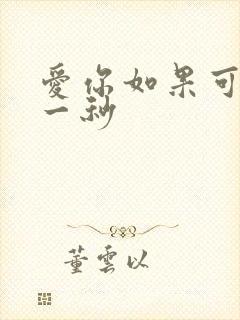 愛你如果可
一秒
董雲以